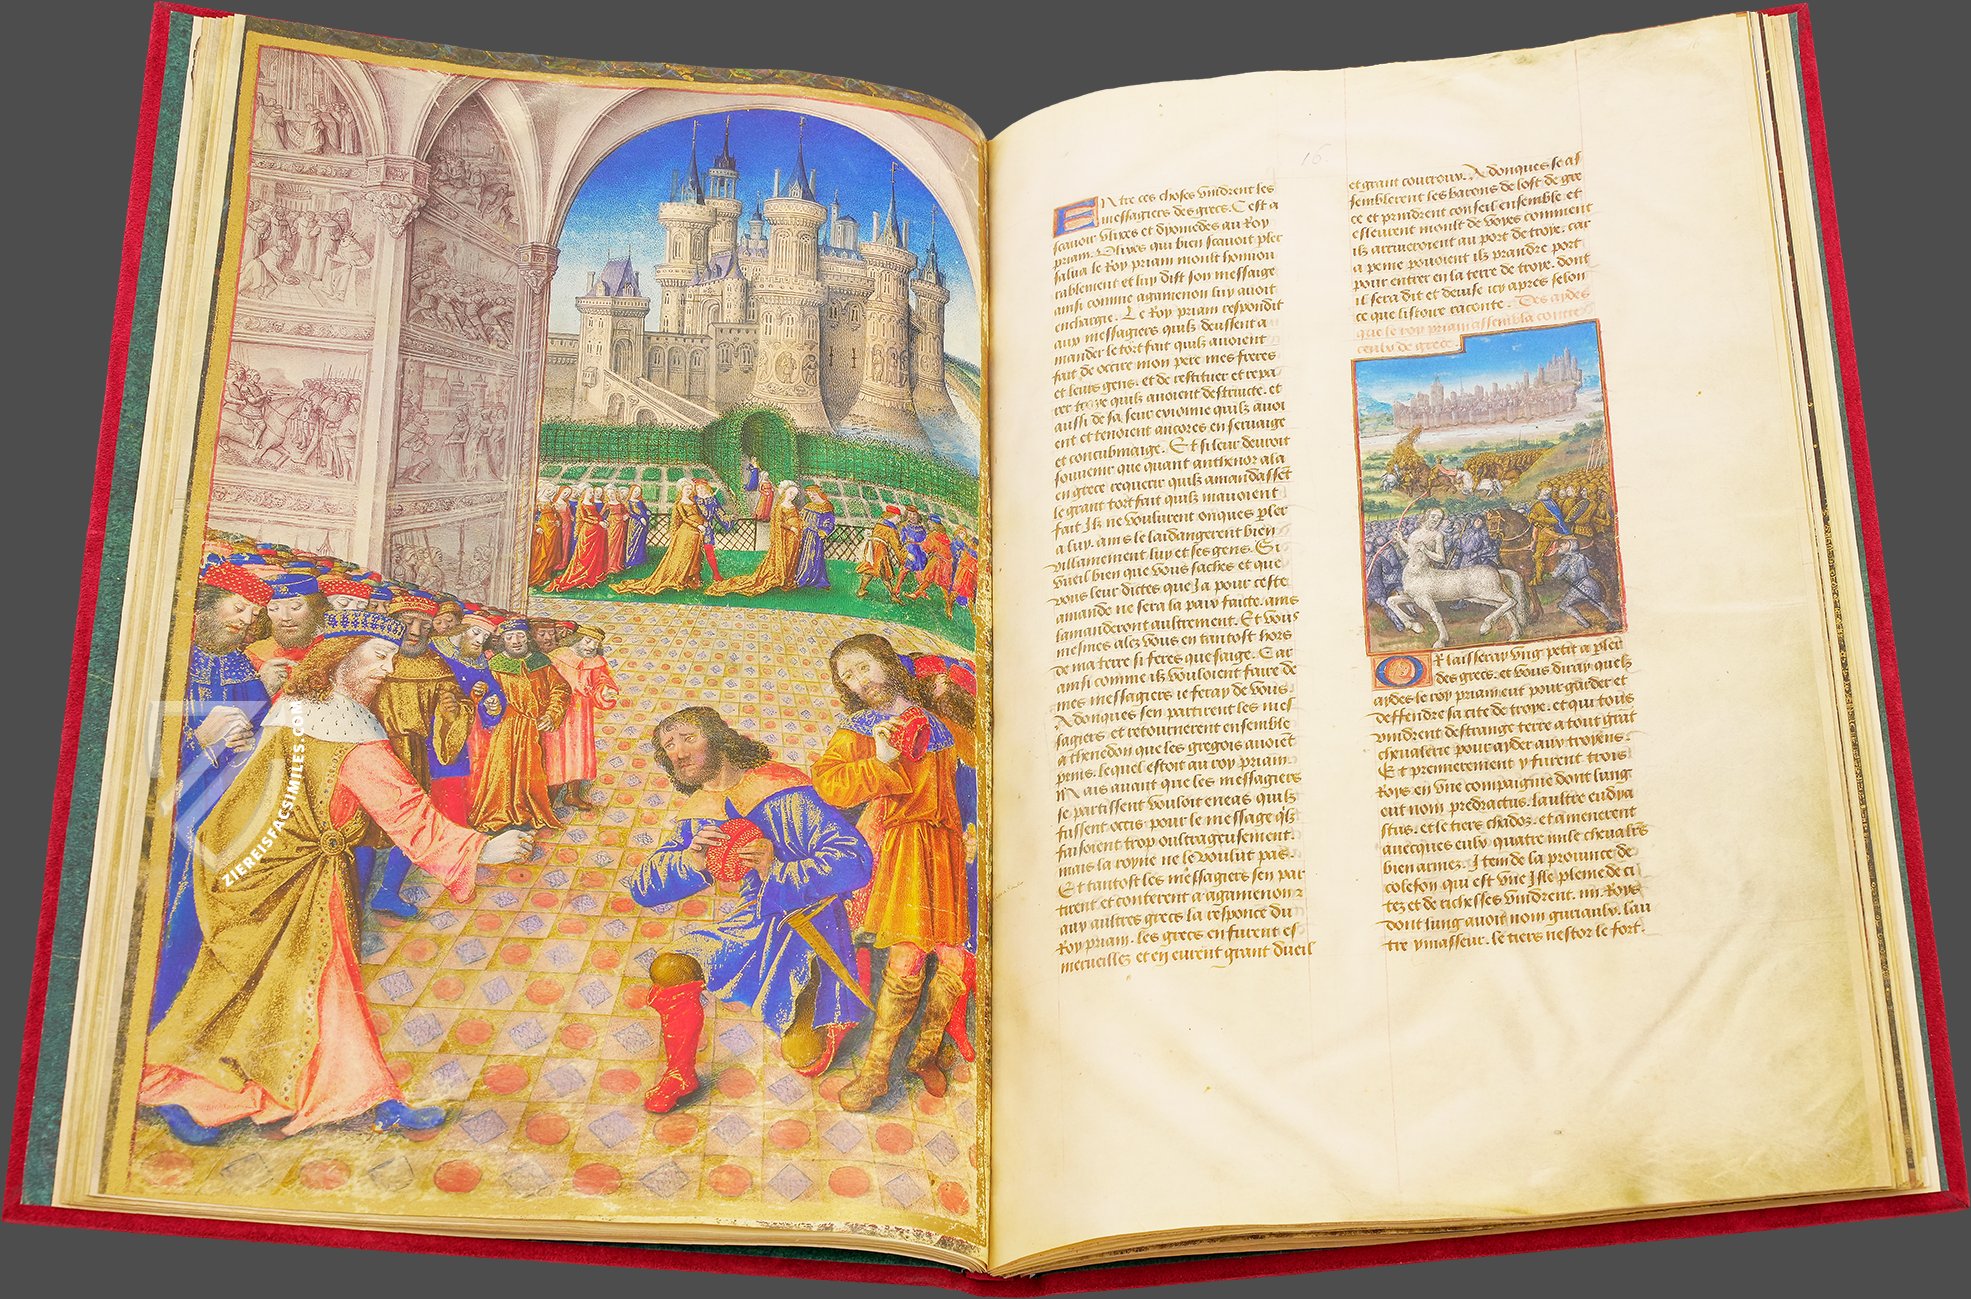 ZIEREISFACSIMILES.COM
16
Entre ces choses vindrent les
messagiers des grecs. C est a
scauoir vlixes et dyomedes au Roy
priam. Vlixes qui bien scauoit pler
salua le Roy priam moult honnou
rablement et luy dist son messaige
ainsi comme agamenon luy auoit
enchargie. Le Roy priam respondit
aup messagiers quilz deussent a
mander le tort fait quilz auoient
fait de occire mon pere mes freres
et leurs gens. et de restituer et repa
rer troye quilz auoient destruicte. et
aussi de sa seur exionne quilz auoi
ent et tenoient ancores en seruaige
et concubinaige. Et si leur deuroit
souuenir que quant anthenor ala
en grece requerir quilz amandassent
le grant tort fait quilz mauoient
fait Ilz ne voulurent onques pler
a luy. ains le laidangerent bien
villainement luy et ses gens. Si
vueil bien que vous saches et que
vous leur dictes que Ja pour ceste
amande ne sera la paix faicte. ains
lamanderont aultrement. Et vous
mesmes alez vous en tantost hors
de ma terre si feres que saige. Car
ainsi comme ilz vouloient faire de
mes messagiers ie feray de vous
Adonques sen partirent les mes
sagiers et retournerent ensemble
a thenedon que les gregois auoient
prins. lequel estoit au roy priam.
Mais auant que les messagiers
se partissent vouloit eneas quilz
fussent occis pour le message qlz
faisoient trop oultrageusement.
mais la royne ne le voulut pas.
Et tantost les messagiers sen par
tirent et conterent a agamenon
aux aultres grecs la responce du
Roy priam. les grecs en furent es
merueillez et en eurent grant dueil
et grant courroux. Adonques se as
semblerent les barons de lost de gre
ce et prindrent conseil ensemble et
esleurent moult de voyes comment
ilz arriueroient au port de troye. car
a peine pouoient ilz prandre port
pour entrer en la terre de troye. dont
il sera dit et deuise icy apres selon
ce que listoire raconte. Des aydes
que le roy priam assembla contre
ceulx de grece.
Or laisseray vng petit a pler
des grecs. et vous diray quelz
aydes le roy priam ent pour garder et
deffendre sa cite de troye. et qui tous
vindrent destrange terre a tout grat
cheualerie pour ayder aux troyens.
Et premierement y furent trois
Roys en vne compaignie dont lung
eut nom predactus. laultre eudya
stus. et le tiers chadoz. et amenerent
auecques eulx quatre mile cheualrs
bien armez. Item de la prouince de
colefon qui est vne isle pleine de ci
tez et de richesses vindrent. iiii. Roys
dont lung auoit nom guiaulx. lau
tre ymasseur. le tiers nestor le fort.